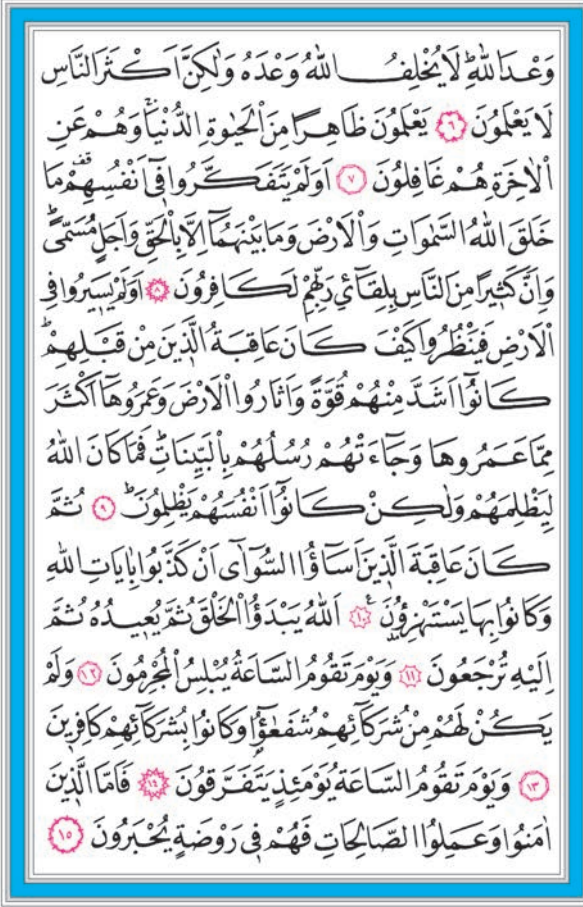 وَعْدَ اللّٰهِؕ لَا يُخْلِفُ اللّٰهُ وَعْدَهُ وَلٰكِنَّ اَكْثَرَ النَّاسِ
لَا يَعْلَمُونَ ﴿٦﴾ يَعْلَمُونَ ظَاهِرًا مِنَ الْحَيٰوةِ الدُّنْيَاۚ وَهُمْ عَنِ
الْاٰخِرَةِ هُمْ غَافِلُونَ ﴿٧﴾ اَوَلَمْ يَتَفَكَّرُوا فٖٓي اَنْفُسِهِمْ۠ مَا
خَلَقَ اللّٰهُ السَّمٰوَاتِ وَالْاَرْضَ وَمَا بَيْنَهُمَٓا اِلَّا بِالْحَقِّ وَاَجَلٍ مُسَمًّىؕ
وَاِنَّ كَثٖيرًا مِنَ النَّاسِ بِلِقَٓائِ رَبِّهِمْ لَكَافِرُونَ ﴿٨﴾ اَوَلَمْ يَسٖيرُوا فِي
الْاَرْضِ فَيَنْظُرُوا كَيْفَ كَانَ عَاقِبَةُ الَّذٖينَ مِنْ قَبْلِهِمْؕ
كَانُٓوا اَشَدَّ مِنْهُمْ قُوَّةً وَاَثَارُوا الْاَرْضَ وَعَمَرُوهَٓا اَكْثَرَ
مِمَّا عَمَرُوهَا وَجَٓاءَتْهُمْ رُسُلُهُمْ بِالْبَيِّنَاتِؕ فَمَا كَانَ اللّٰهُ
لِيَظْلِمَهُمْ وَلٰكِنْ كَانُٓوا اَنْفُسَهُمْ يَظْلِمُونَؕ ﴿٩﴾ ثُمَّ
كَانَ عَاقِبَةَ الَّذٖينَ اَسَٓاؤُا السُّٓوآٰى اَنْ كَذَّبُوا بِاٰيَاتِ اللّٰهِ
وَكَانُوا بِهَا يَسْتَهْزِؤُ۫نَ ﴿١٠﴾ اَللّٰهُ يَبْدَؤُا الْخَلْقَ ثُمَّ يُعٖيدُهُ ثُمَّ
اِلَيْهِ تُرْجَعُونَ ﴿١١﴾ وَيَوْمَ تَقُومُ السَّاعَةُ يُبْلِسُ الْمُجْرِمُونَ ﴿١٢﴾ وَلَمْ
يَكُنْ لَهُمْ مِنْ شُرَكَٓائِهِمْ شُفَعٰٓؤُ۬ا وَكَانُوا بِشُرَكَٓائِهِمْ كَافِرٖينَ
﴿١٣﴾ وَيَوْمَ تَقُومُ السَّاعَةُ يَوْمَئِذٍ يَتَفَرَّقُونَ ﴿١٤﴾ فَاَمَّا الَّذٖينَ
اٰمَنُوا وَعَمِلُوا الصَّالِحَاتِ فَهُمْ فٖي رَوْضَةٍ يُحْبَرُونَ ﴿١٥﴾